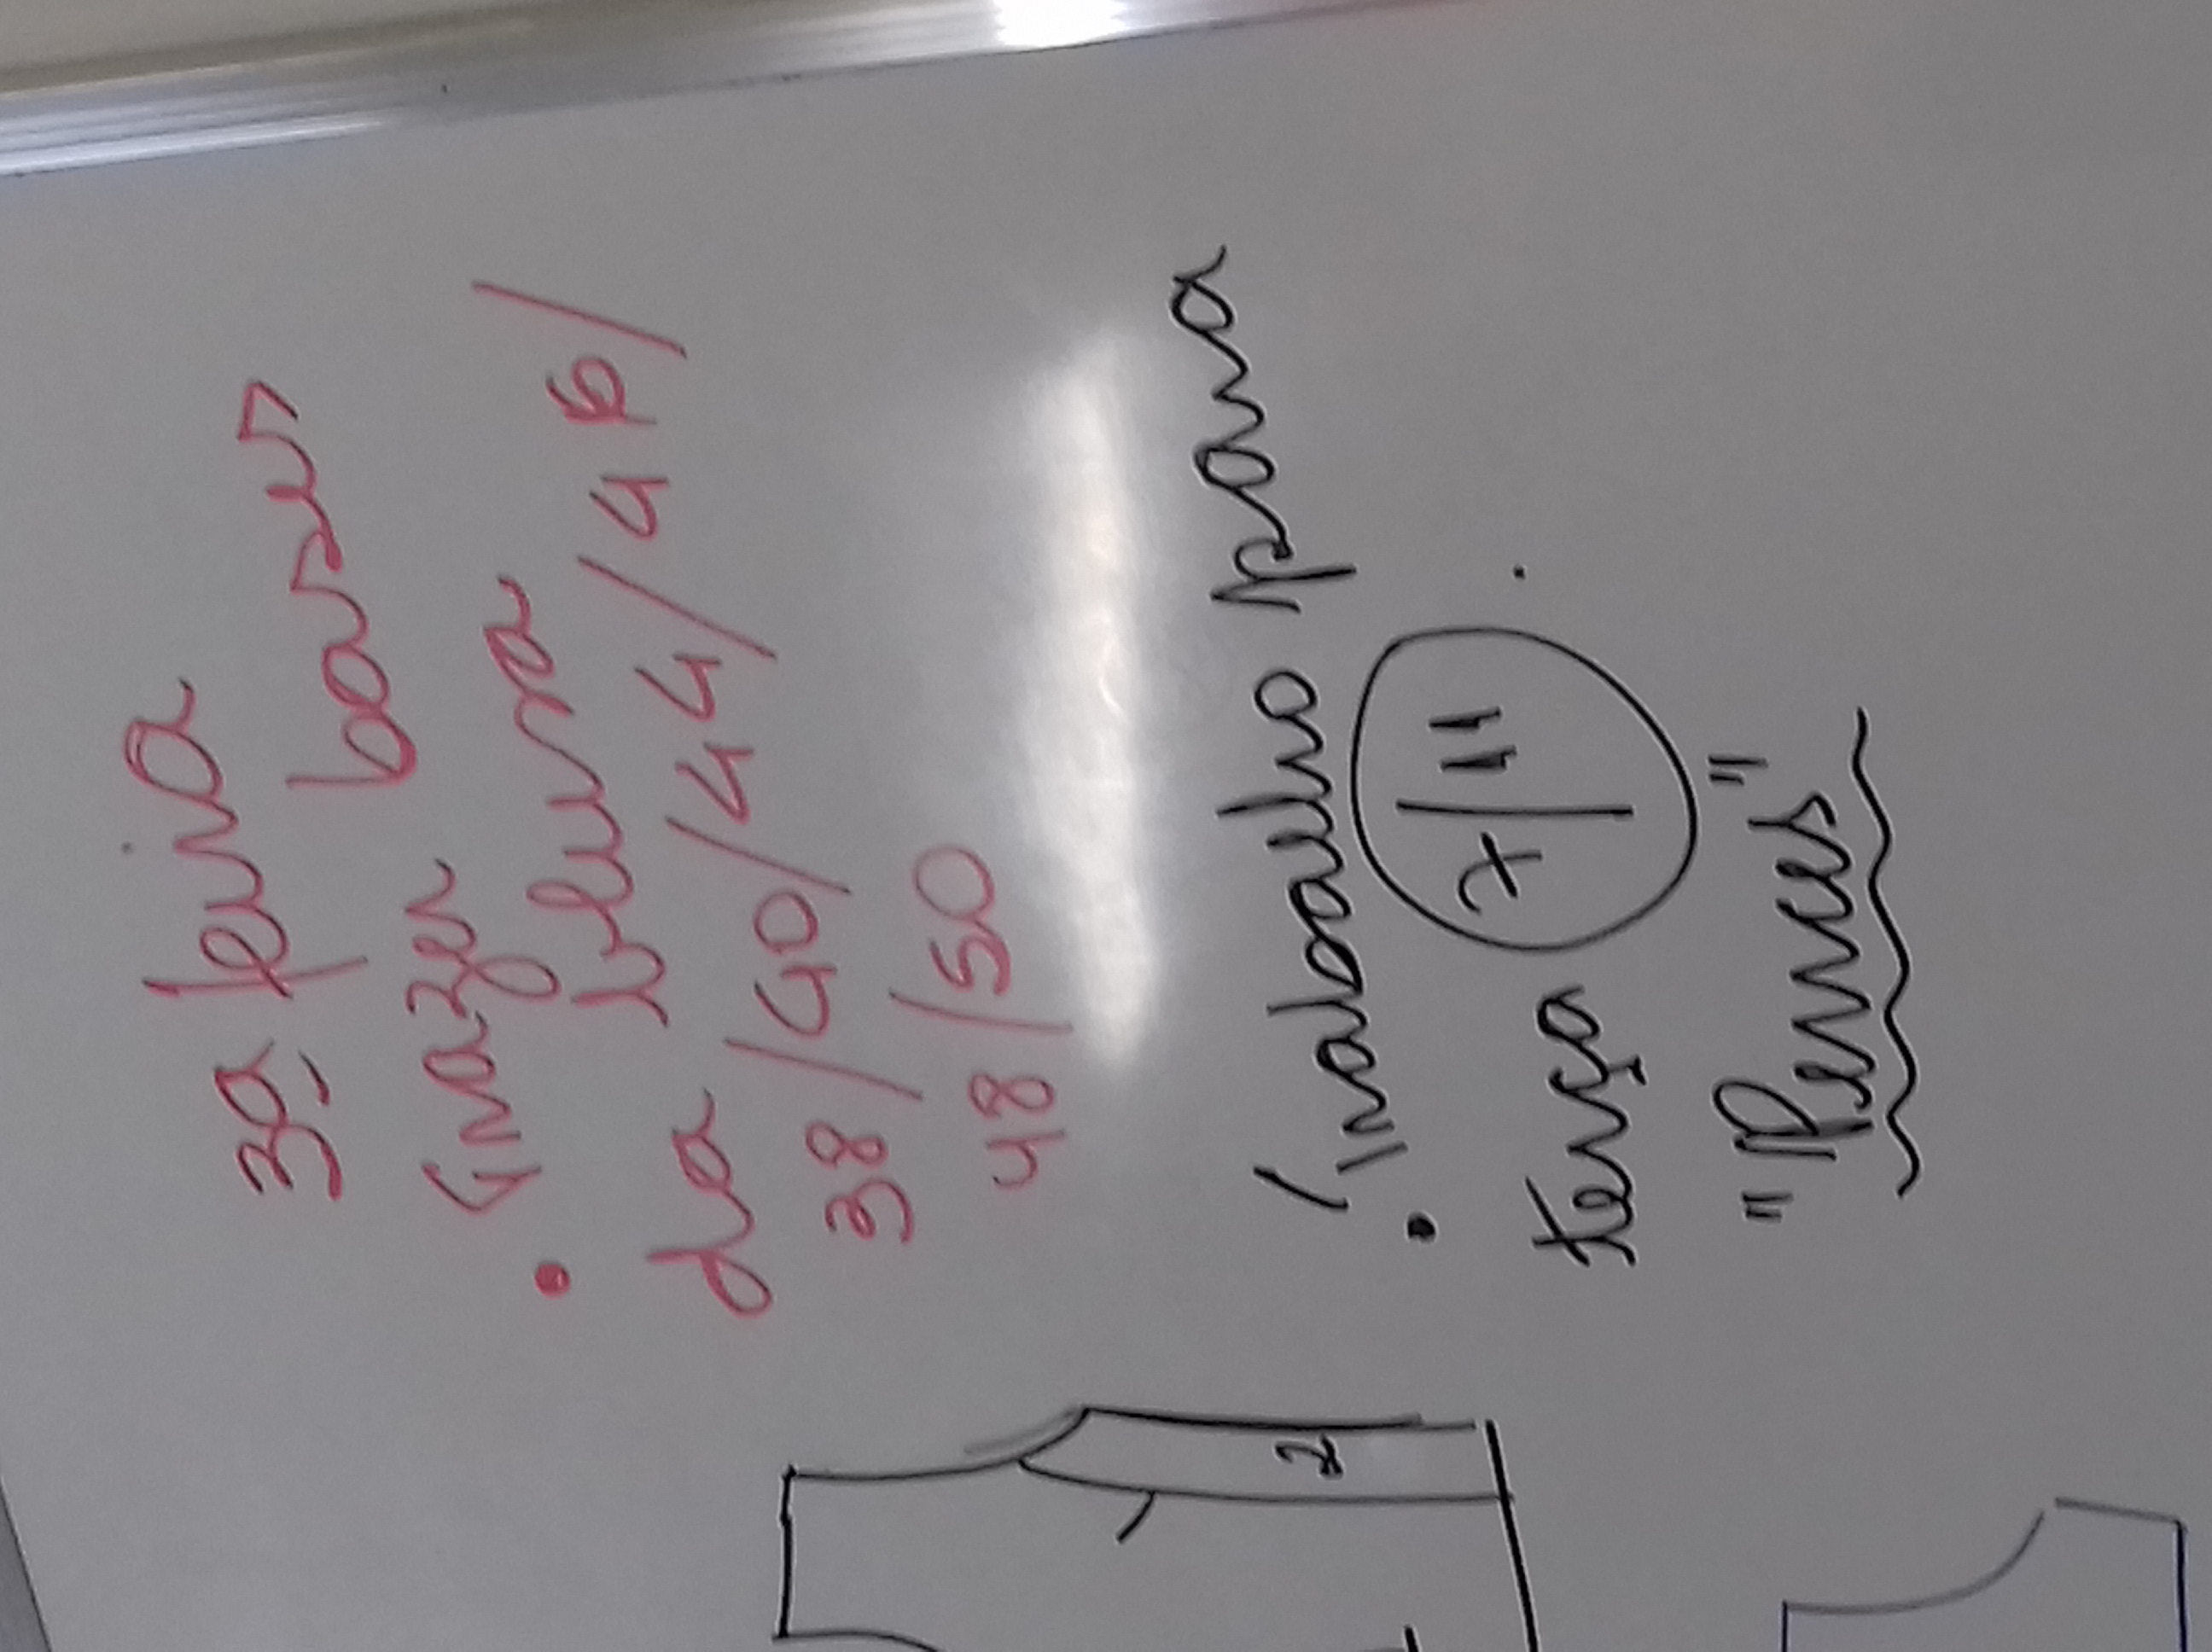 3ª feira
• Trazer bases
da blusa
38/40/44/46/
48/50
2
• Trabalho para
terça 7/11.
"Pences"